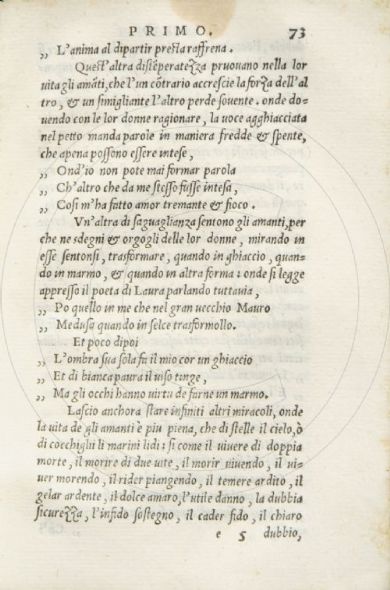 PRIMO. 73
„ L'anima al dipartir presta raffrena.
Quest'altra distēperatezza pruovano nella lor
vita gli amāti, che l'un cōtrario accrescie la forza dell'al
tro, & un simigliante l'altro perde souente. onde do-
uendo con le lor donne ragionare, la uoce agghiacciata
nel petto manda parole in maniera fredde & spente,
che apena possono essere intese,
„ Ond'io non pote mai formar parola
„ Ch'altro che da me stesso fusse intesa,
„ Cosi m'ha fatto amor tremante & fioco.
Vn'altra disaguaglianza sentono gli amanti, per
che ne sdegni & orgogli delle lor donne, mirando in
esse sentonsi, trasformare, quando in ghiaccio, quan-
do in marmo, & quando in altra forma: onde si legge
appresso il poeta di Laura parlando tuttauia,
„ Po quello in me che nel gran uecchio Mauro
„ Medusa quando in selce trasformollo.
Et poco dipoi
„ L'ombra sua sola fa il mio cor un ghiaccio
„ Et di bianca paura il uiso tinge,
„ Ma gli occhi hanno uirtu de farne un marmo.
Lascio anchora stare infiniti altri miracoli, onde
la uita de gli amanti è piu piena, che di stelle il cielo, ò
di cocchigli li marini lidi: si come il uiuere di doppia
morte, il morire di due uite, il morir uiuendo, il ui-
uer morendo, il rider piangendo, il temere ardito, il
gelar ardente, il dolce amaro, l'utile danno, la dubbia
sicurezza, l'infido sostegno, il cader fido, il chiaro
e 5 dubbio,